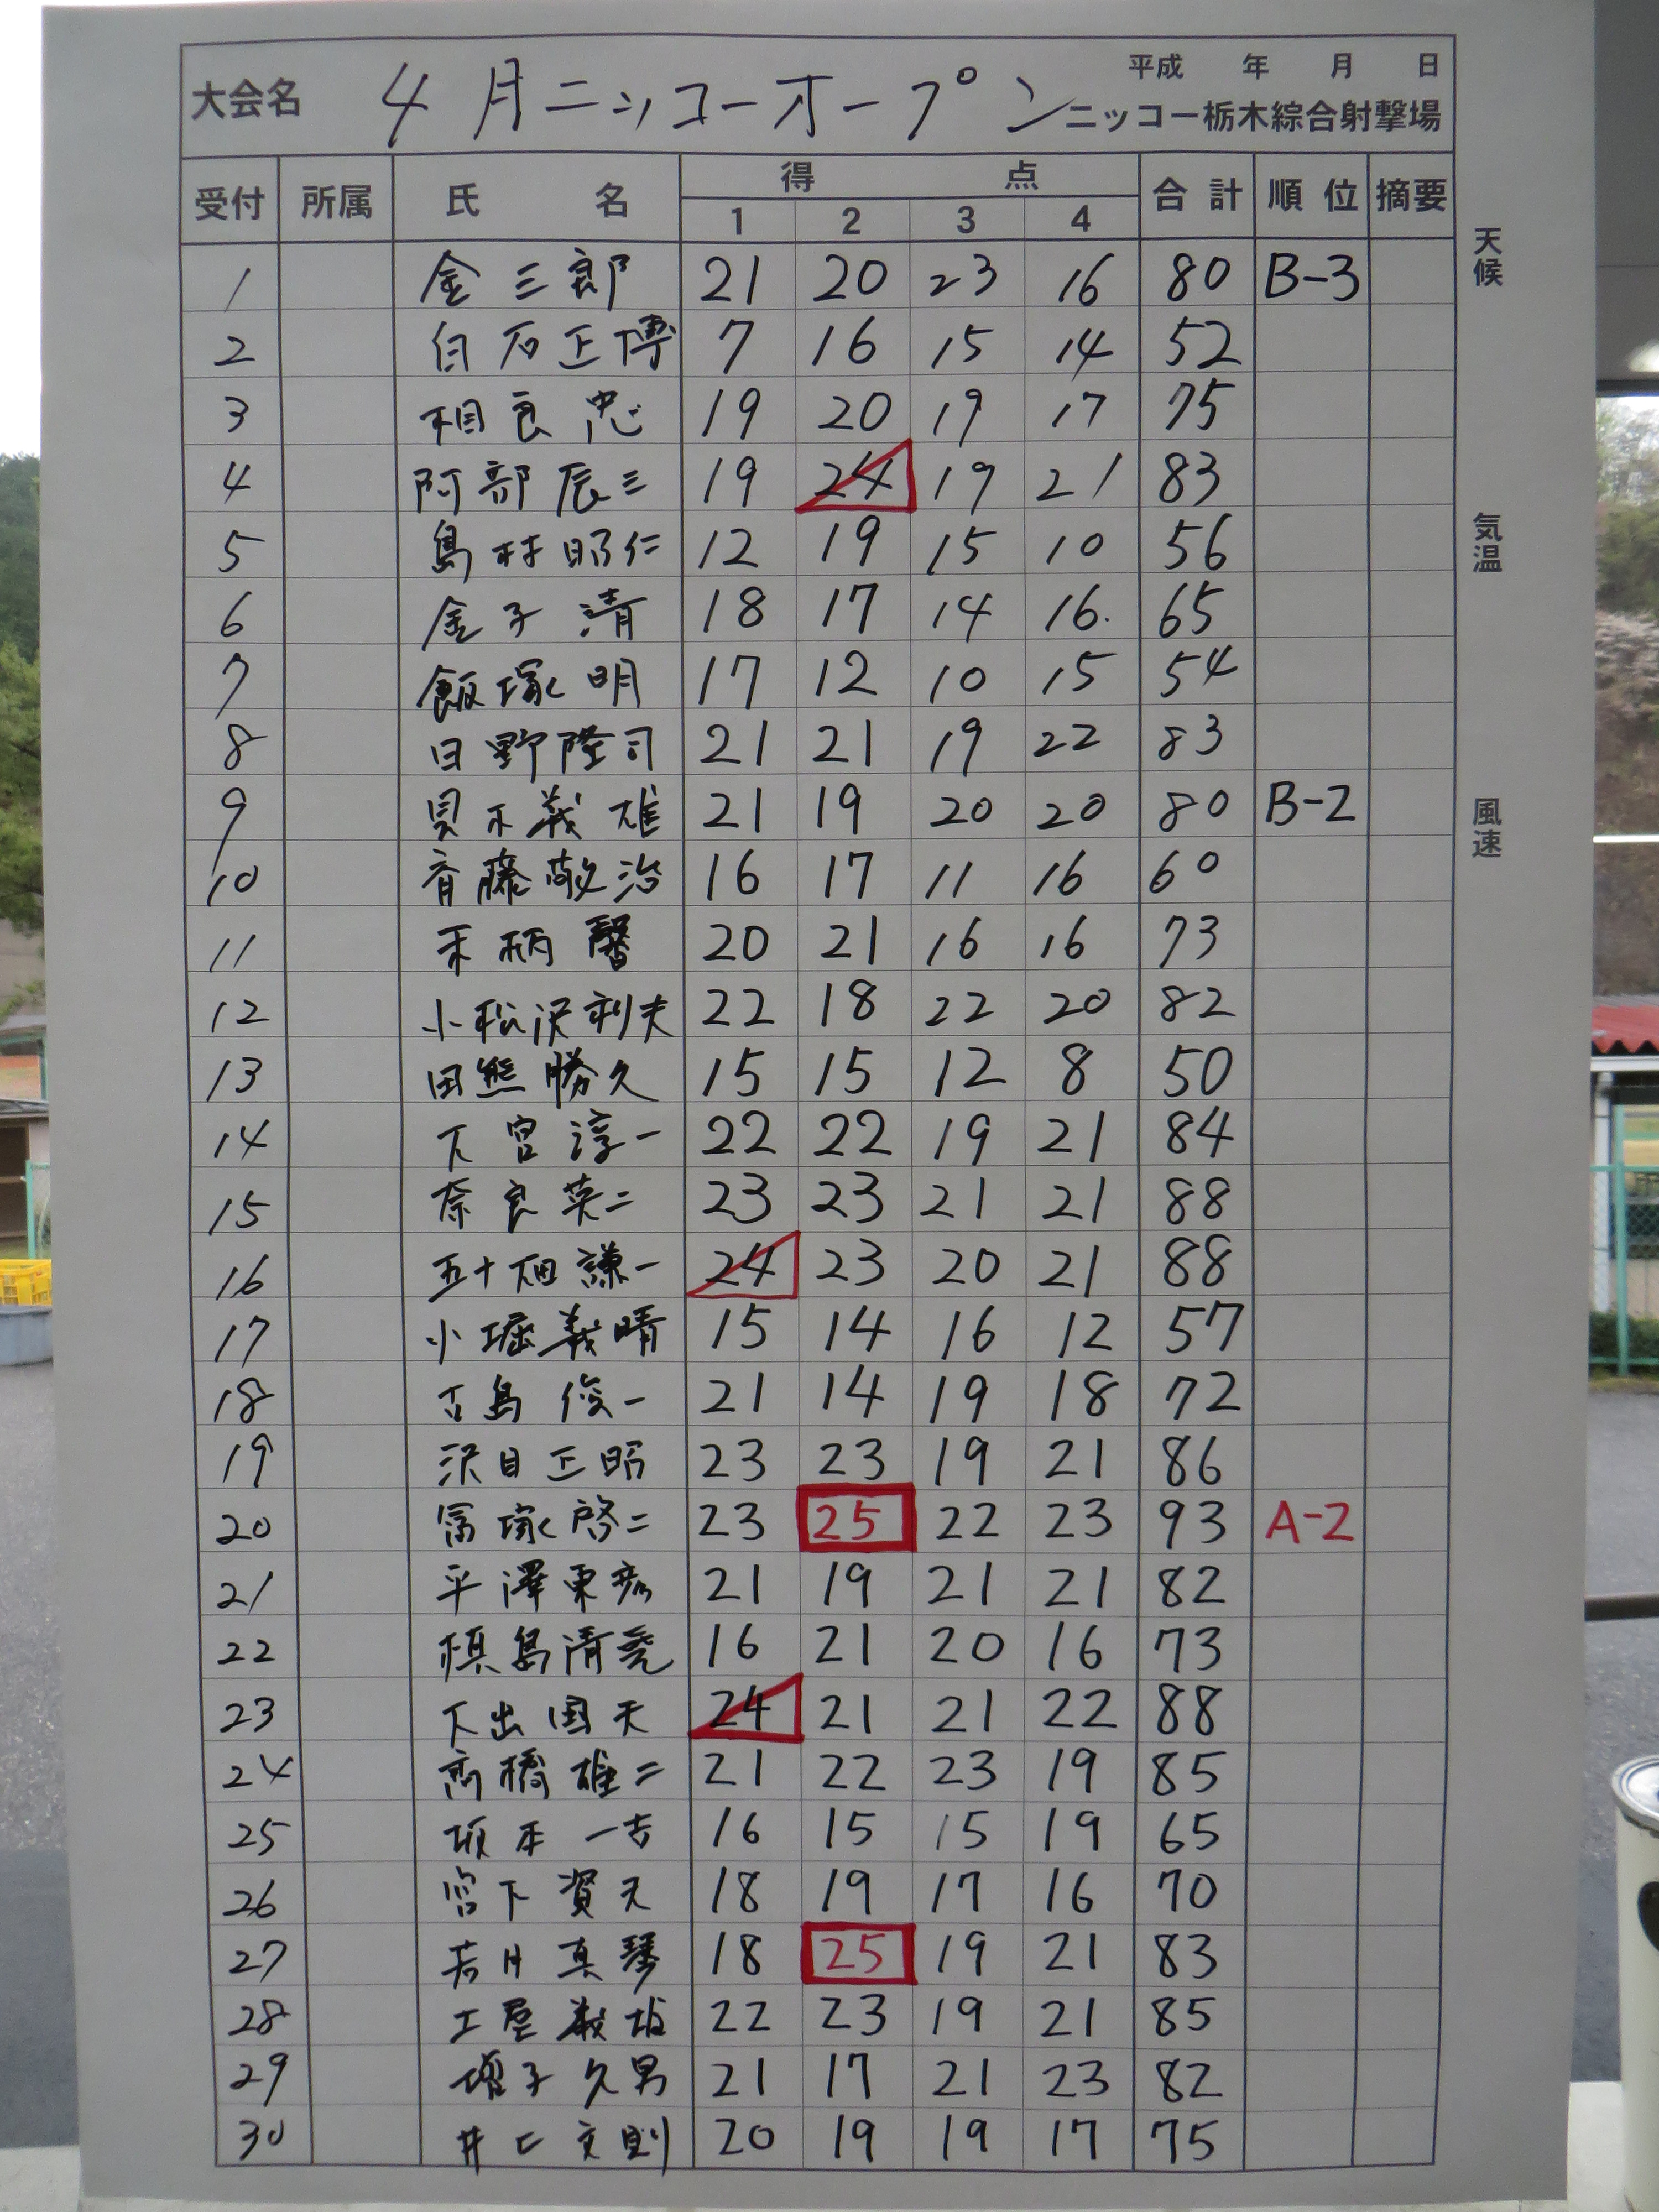 平成 年 月 日
大会名 4月ニッコーオープン ニッコー栃木綜合射撃場
受付 所属 氏名 得点 合計 順位 摘要
1 2 3 4
1 金三郎 21 20 23 16 80 B-3
2 白石正博 7 16 15 14 52
3 相良忠 19 20 19 17 75
4 阿部辰三 19 24 19 21 83
5 島村昭仁 12 19 15 10 56
6 金子清 18 17 14 16. 65
7 飯塚明 17 12 10 15 54
8 日野隆司 21 21 19 22 83
9 義雄 21 19 20 20 80 B-2
10 斉藤敬治 16 17 11 16 60
11 20 21 16 16 73
12 小松沢利夫 22 18 22 20 82
13 田熊勝久 15 15 12 8 50
14 下宮淳一 22 22 19 21 84
15 奈良英二 23 23 21 21 88
16 五十畑謙一 24 23 20 21 88
17 小堀義晴 15 14 16 12 57
18 古島俊一 21 14 19 18 72
19 沢目正昭 23 23 19 21 86
20 冨塚啓二 23 25 22 23 93 A-2
21 平澤東彦 21 19 21 21 82
22 槙島清 16 21 20 16 73
23 下出国夫 24 21 21 22 88
24 高橋雄二 21 22 23 19 85
25 坂本一吉 16 15 15 19 65
26 宮下資夫 18 19 17 16 70
27 若月真琴 18 25 19 21 83
28 土屋義雄 22 23 19 21 85
29 増子久男 21 17 21 23 82
30 井上文則 20 19 19 17 75
天候
気温
風速